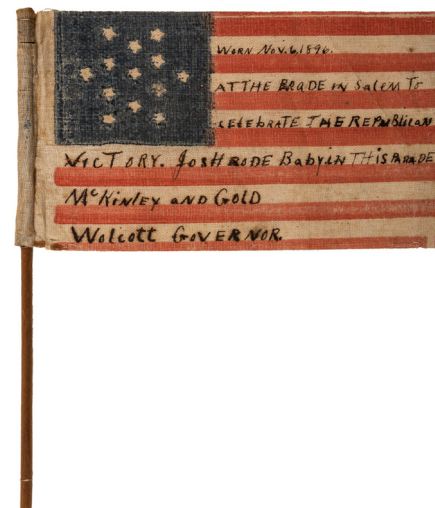 WORN NOV. 6, 1896.
AT THE PARADE in Salem To
CELEBRATE THE REPUBLICAN
VICTORY. JOSH RODE Baby in THIS PARADE
McKinley AND GOLD
Wolcott GOVERNOR.